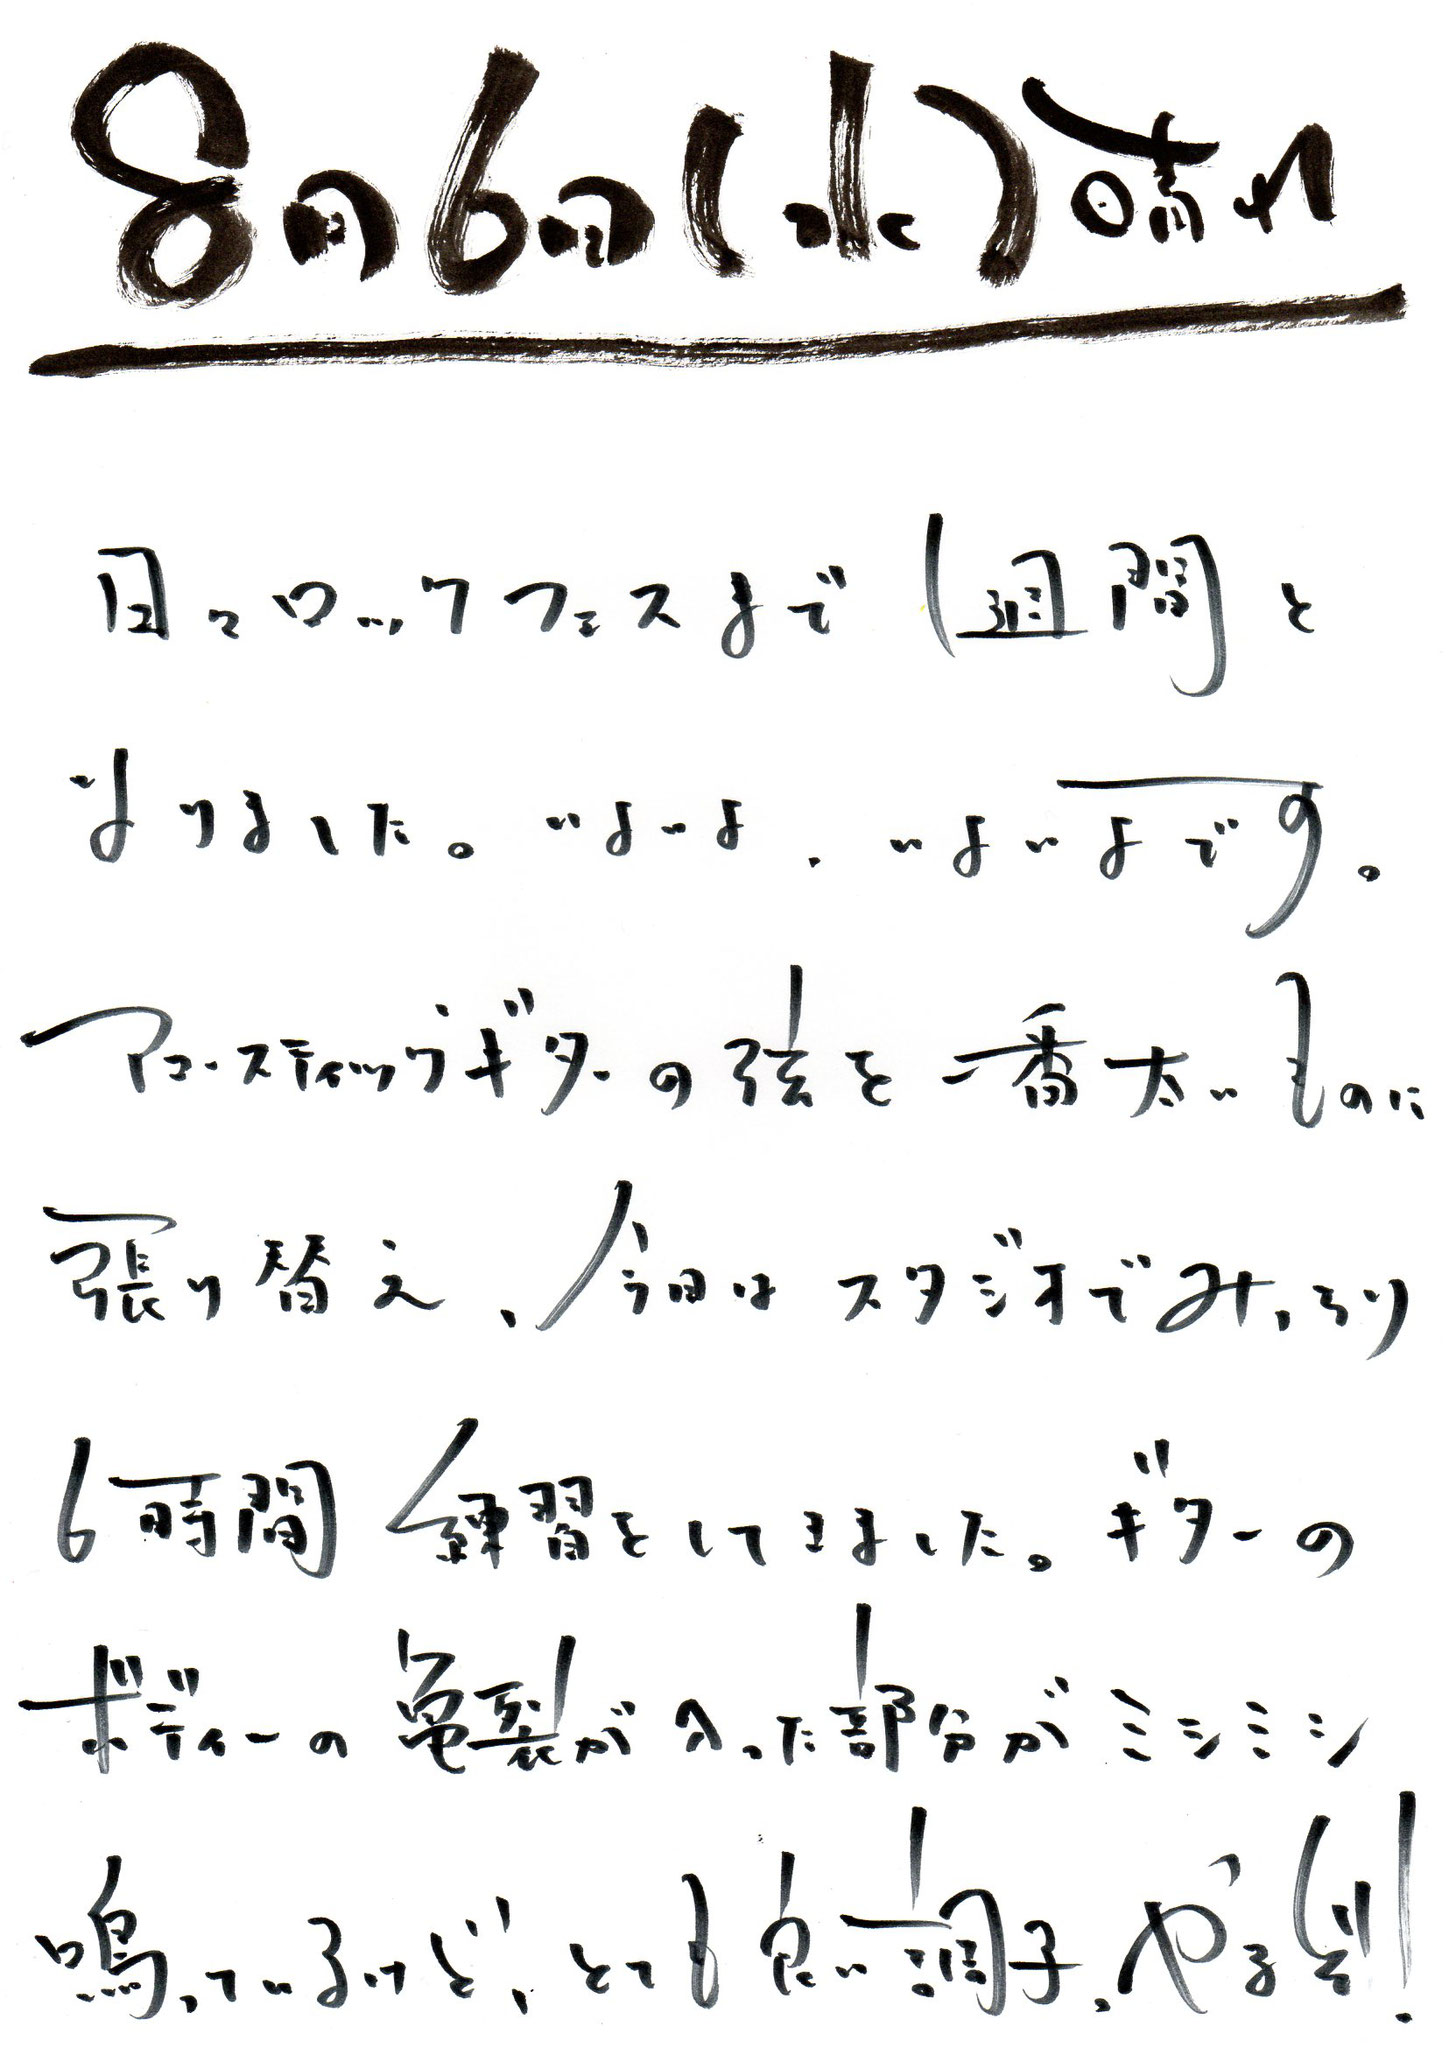 8月6日(水)晴れ
日々ロックフェスまで1週間と
なりました。いよいよ、いよいよです。
アコースティックギターの弦を一番太いものに
張り替え、今日はスタジオでみっちり
6時間練習をしてきました。ギターの
ボディーの亀裂が入った部分がミシミシ
鳴っているけど、とても良い調子。やるぞ!